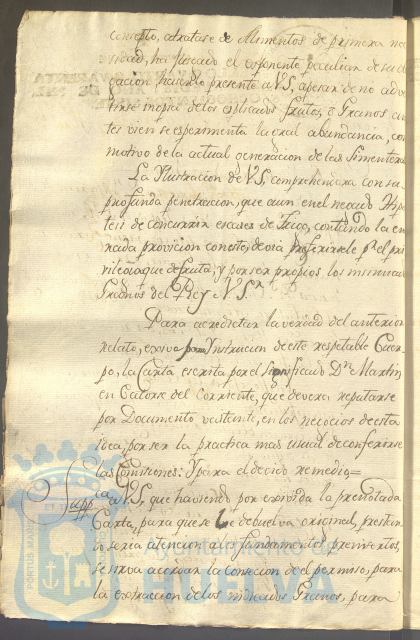 concepto, atratase de Alimentos de primera nec
sidad, ha fluscado el exponente peculiar de su de
cacion, hacerlo presente a VS, apesar de no adve
tirse inopia de los esplicados frutos, o Granos an
tes vien se esperimenta la exal abundancia, con
motivo de la actual generacion de las Simentera
La Ylustracion de VS, comprehendera con su
profunda penetracion, que aun en el negado Hipo
tesis de concurrir escases de Trigo, contando la en
ciada provicion con este, devia preferirsele pr. el pri
vilegio que disfruta, y por ser propios los mismos
Granos del Rey N. Sr.
Para acredictar la verdad del anterior
relato, exive para Ynstruccion de este respetable Cuer
po, la Carta escrita por el significado Dn. Martin
en Catorse del Corriente, que devera reputarse
por Documento vastante, en los negocios de esta
idea, por ser la practica mas usual de conferirse
las Comisiones: Y para el devido remedio=
Supp
ca a VS, que haviendo por exivida la precitada
Carta, para que se le debuelva original, prestan
do seria atencion a los fundamentos premisertos,
se sirva acordar la consecion del permiso, para
la extraccion de los indicados Granos, para
Ayuntamiento de
HUELVA
PORTUS MARIS